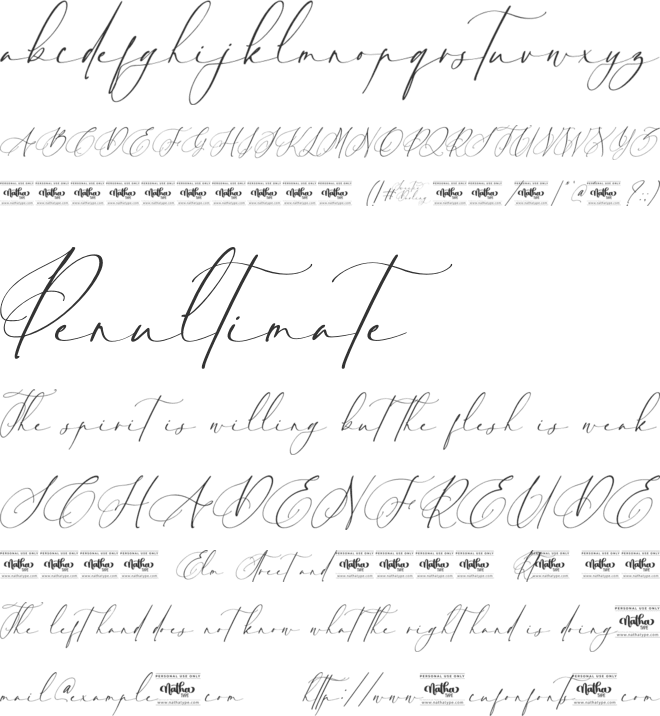 abcdefghijklmnopqrstuvwxyz
ABCDEFGHIJKLMNOPQRSTUVWXYZ
PERSONAL USE ONLY Natha TYPE www.nathatype.com PERSONAL USE ONLY Natha TYPE www.nathatype.com PERSONAL USE ONLY Natha TYPE www.nathatype.com PERSONAL USE ONLY Natha TYPE www.nathatype.com PERSONAL USE ONLY Natha TYPE www.nathatype.com PERSONAL USE ONLY Natha TYPE www.nathatype.com PERSONAL USE ONLY Natha TYPE www.nathatype.com PERSONAL USE ONLY Natha TYPE www.nathatype.com PERSONAL USE ONLY Natha TYPE www.nathatype.com PERSONAL USE ONLY Natha TYPE www.nathatype.com (!# PERSONAL USE ONLY Natha TYPE www.nathatype.com PERSONAL USE ONLY Natha TYPE www.nathatype.com / PERSONAL USE ONLY Natha TYPE www.nathatype.com |"'@ PERSONAL USE ONLY Natha TYPE www.nathatype.com ?:;)
Penultimate
The spirit is willing but the flesh is weak
SCHADENFREUDE
PERSONAL USE ONLY Natha TYPE www.nathatype.com PERSONAL USE ONLY Natha TYPE www.nathatype.com PERSONAL USE ONLY Natha TYPE www.nathatype.com PERSONAL USE ONLY Natha TYPE www.nathatype.com Elm Street and PERSONAL USE ONLY Natha TYPE www.nathatype.com PERSONAL USE ONLY Natha TYPE www.nathatype.com PERSONAL USE ONLY Natha TYPE www.nathatype.com PERSONAL USE ONLY Natha TYPE www.nathatype.com Rt PERSONAL USE ONLY Natha TYPE www.nathatype.com PERSONAL USE ONLY Natha TYPE www.nathatype.com PERSONAL USE ONLY Natha TYPE www.nathatype.com
The left hand does not know what the right hand is doing PERSONAL USE ONLY Natha TYPE www.nathatype.com
mail@example PERSONAL USE ONLY Natha TYPE www.nathatype.com com http://www PERSONAL USE ONLY Natha TYPE www.nathatype.com cufonfonts PERSONAL USE ONLY Natha TYPE www.nathatype.com com